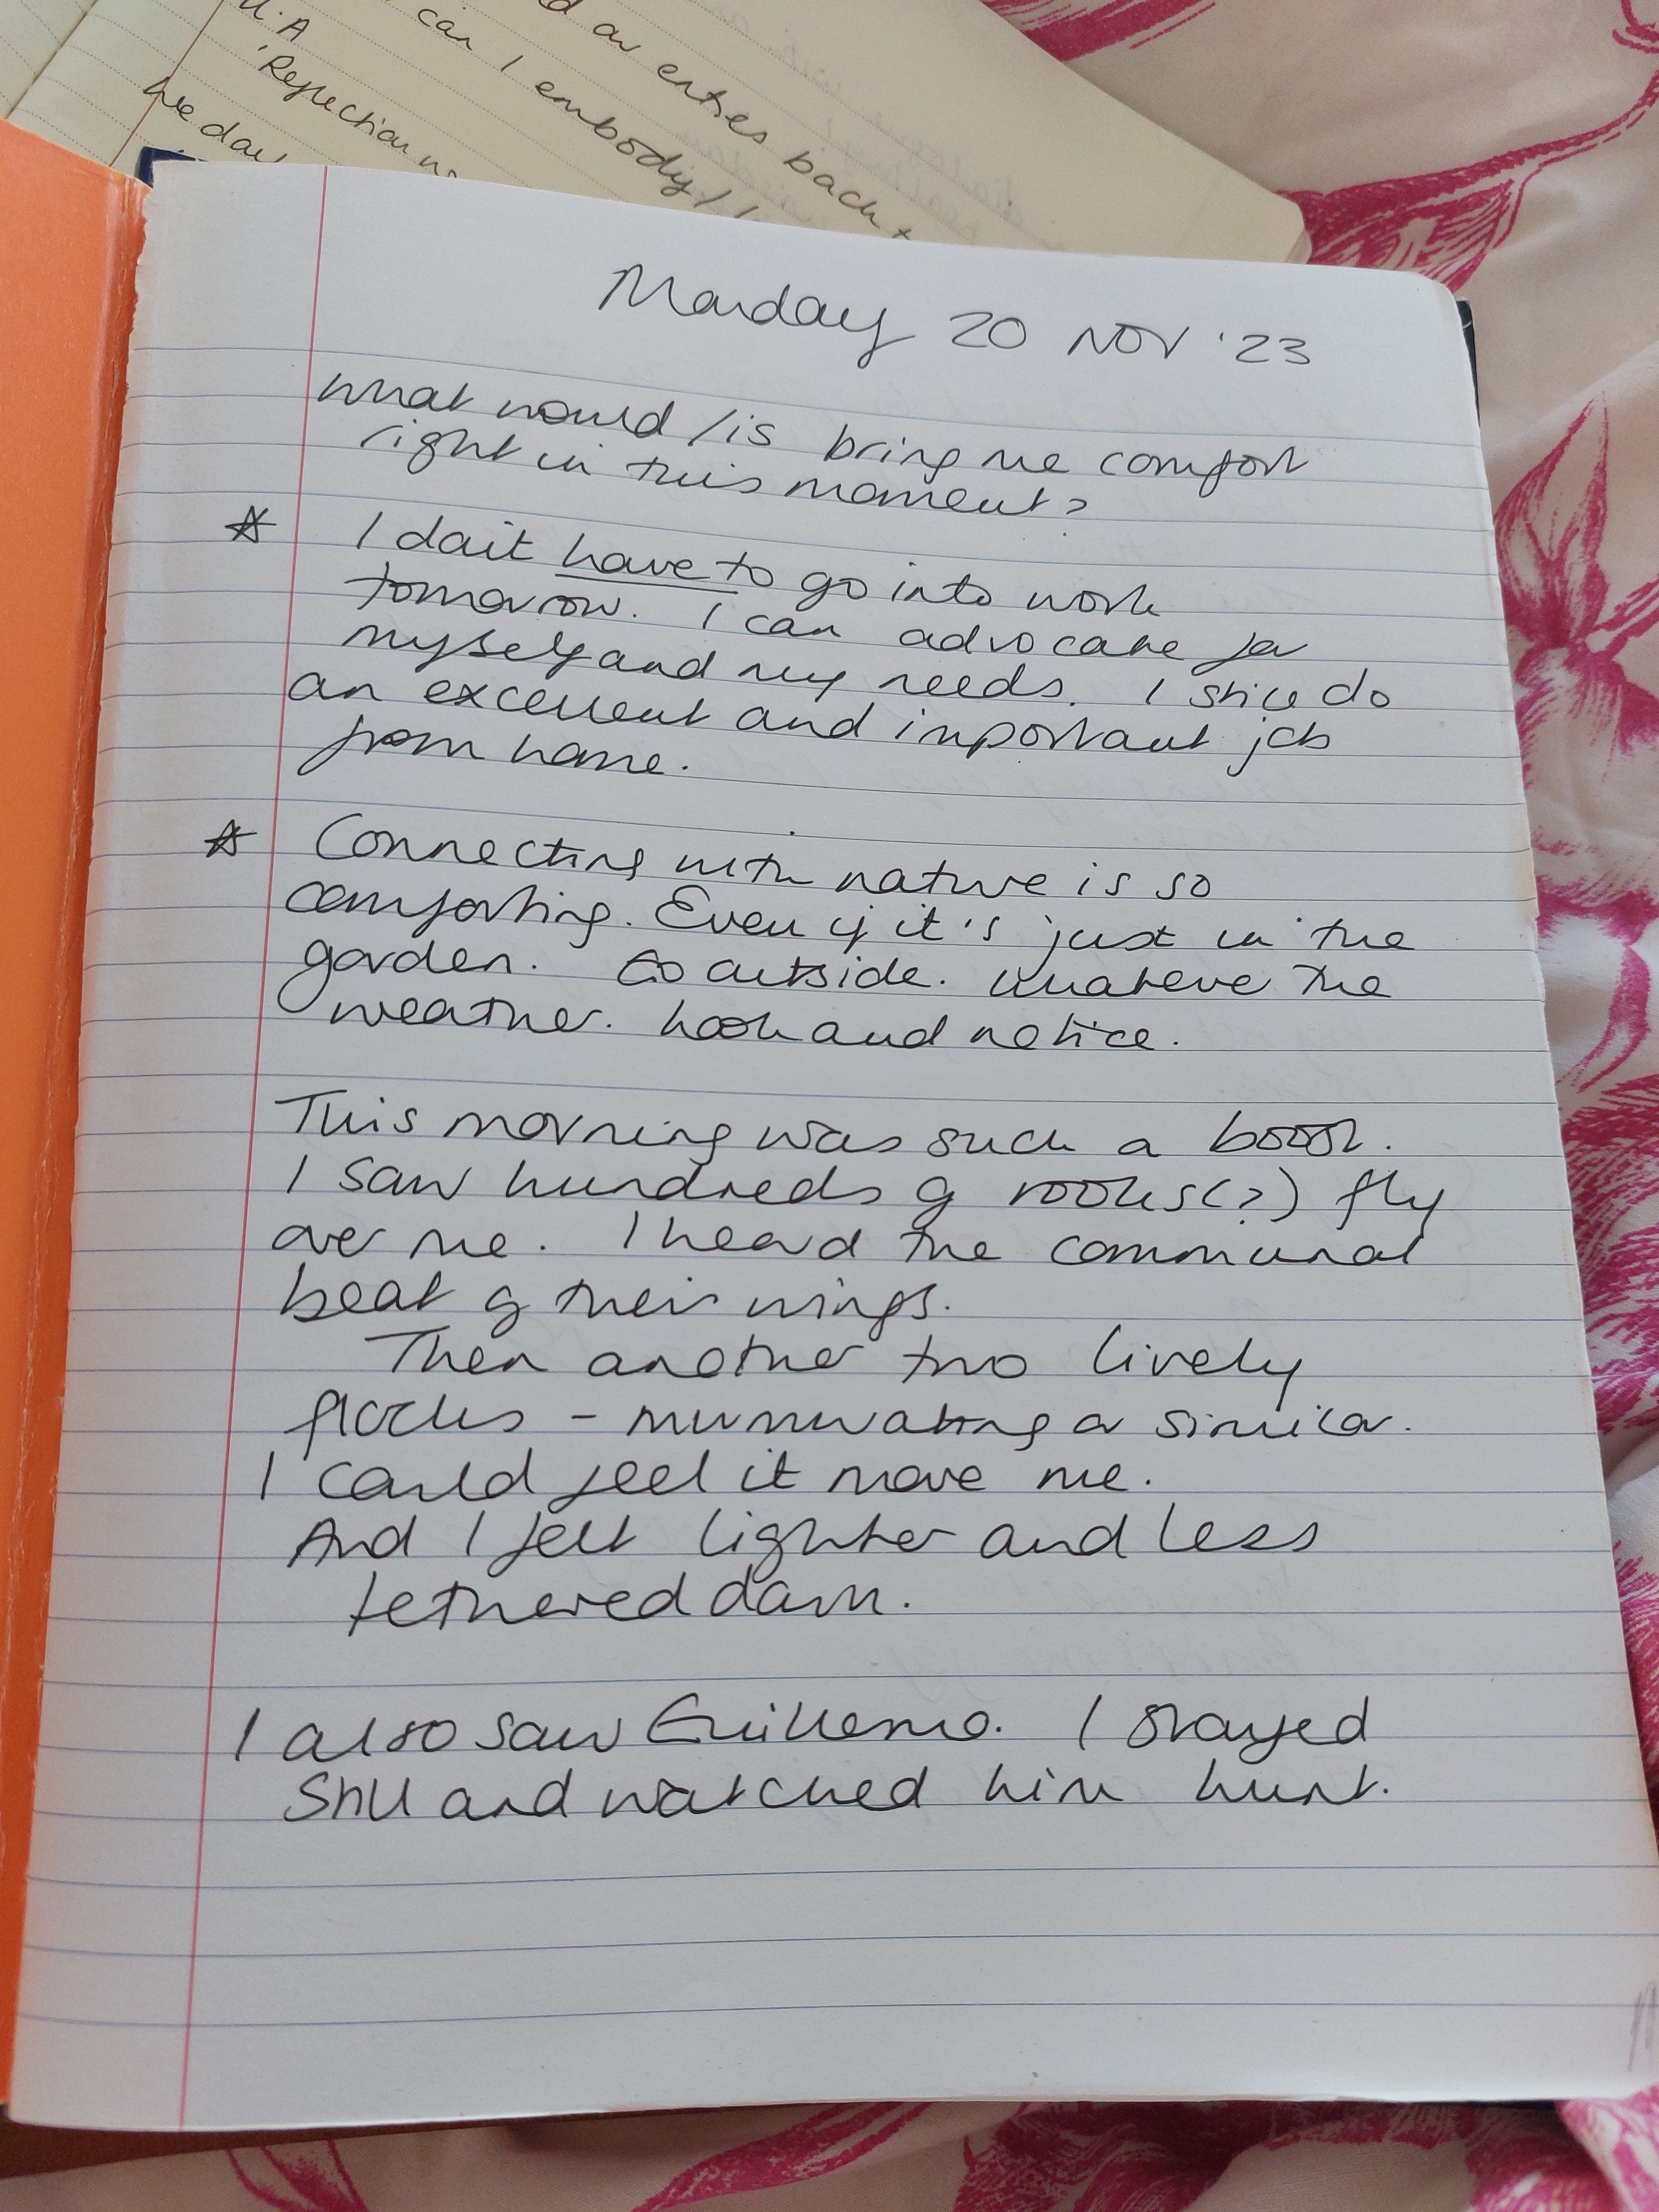 d an entries back
can I embody /
U.A
'Reflection
we day
Monday 20 NOV '23
what would / is bring me comfort
right in this moment?
☆ I don't have to go into work
tomorrow. I can advocate for
myself and my needs. I still do
an excellent and important job
from home.
☆ Connecting with nature is so
comforting. Even if it's just in the
garden. Go outside. Whatever the
weather. Look and notice.
This morning was such a boost.
I saw hundreds of rooks(?) fly
over me. I heard the communal
beat of their wings.
Then another two lively
flocks - murmurating or similar.
I could feel it move me.
And I felt lighter and less
tethered down.
I also saw Guillermo. I stayed
still and watched him hunt.